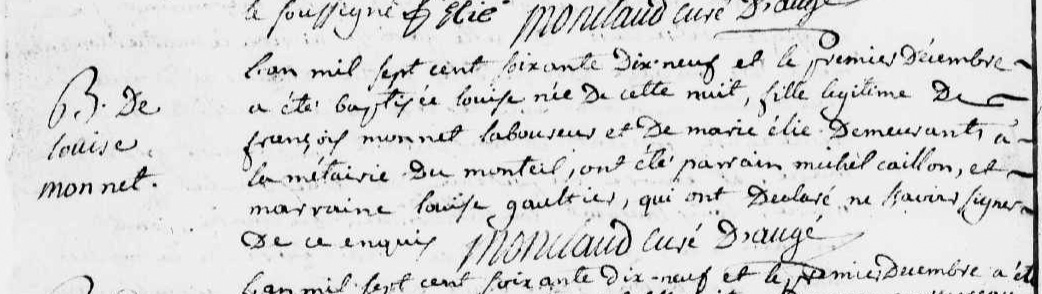 le soussigné f. élie monilaud curé D'augé
L'an mil sept cent soixante dix-neuf et le premier décembre
a été baptisée louise née De cette nuit, fille legitime De
françois monnet laboureur et De marie élie Demeurants à
la métairie Du monteil, ont été parrain michel caillon, et
marraine louise gaultier, qui ont Déclaré ne savoir signer
De ce enquis monilaud curé D'augé
B. De
louise
monnet.
L'an mil sept cent soixante dix-neuf et le premier Décembre a été